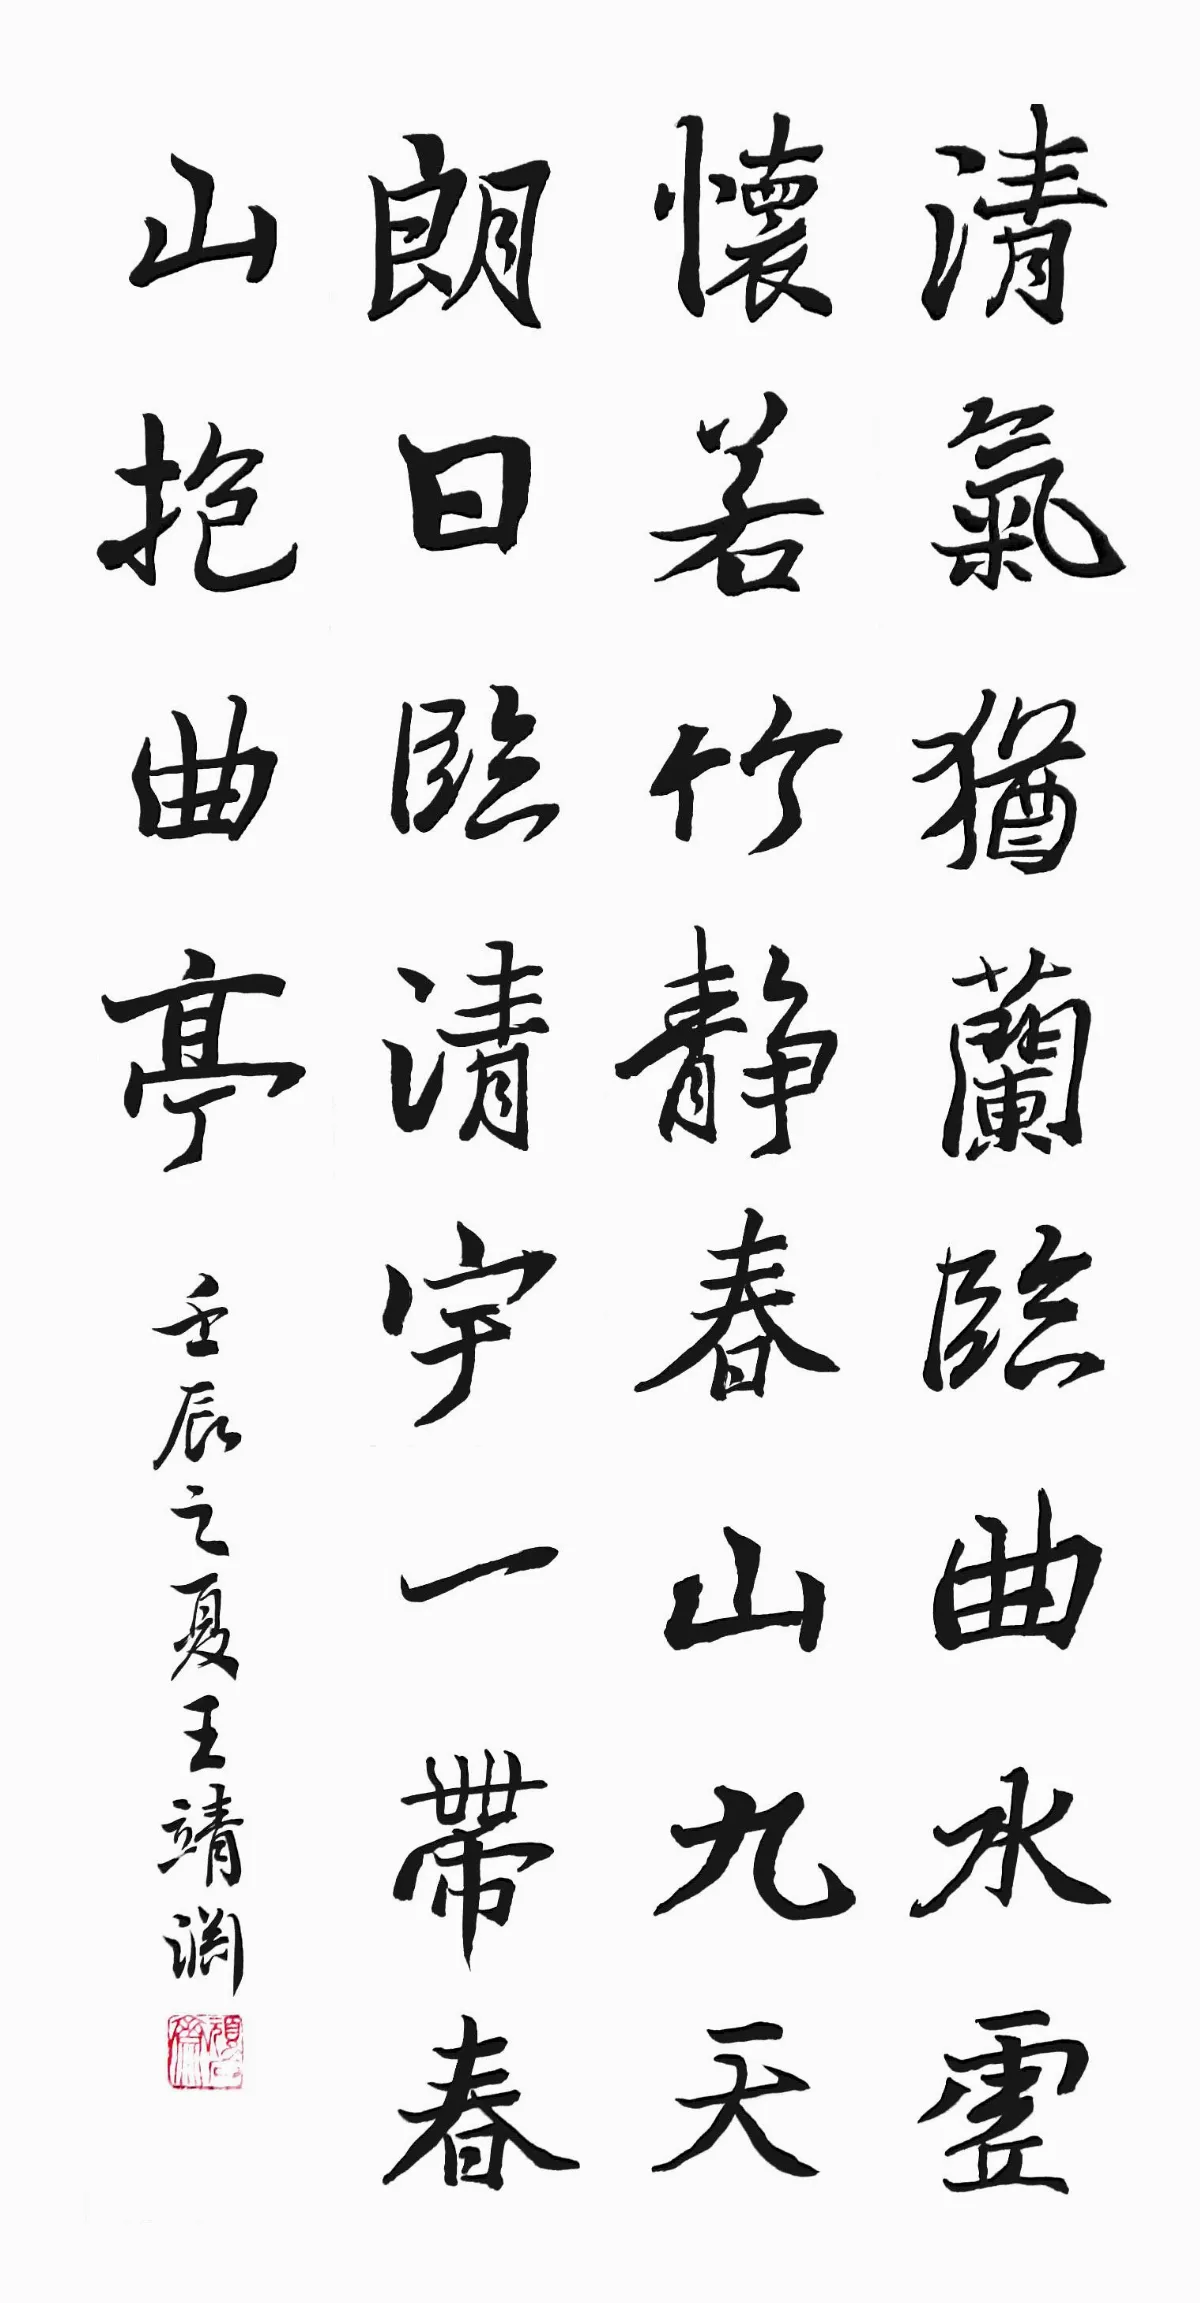 清氣猶蘭臨曲水虛
懷若竹静春山九天
朗日臨清宇一帶春
山抱曲亭
壬辰之夏王靖淵